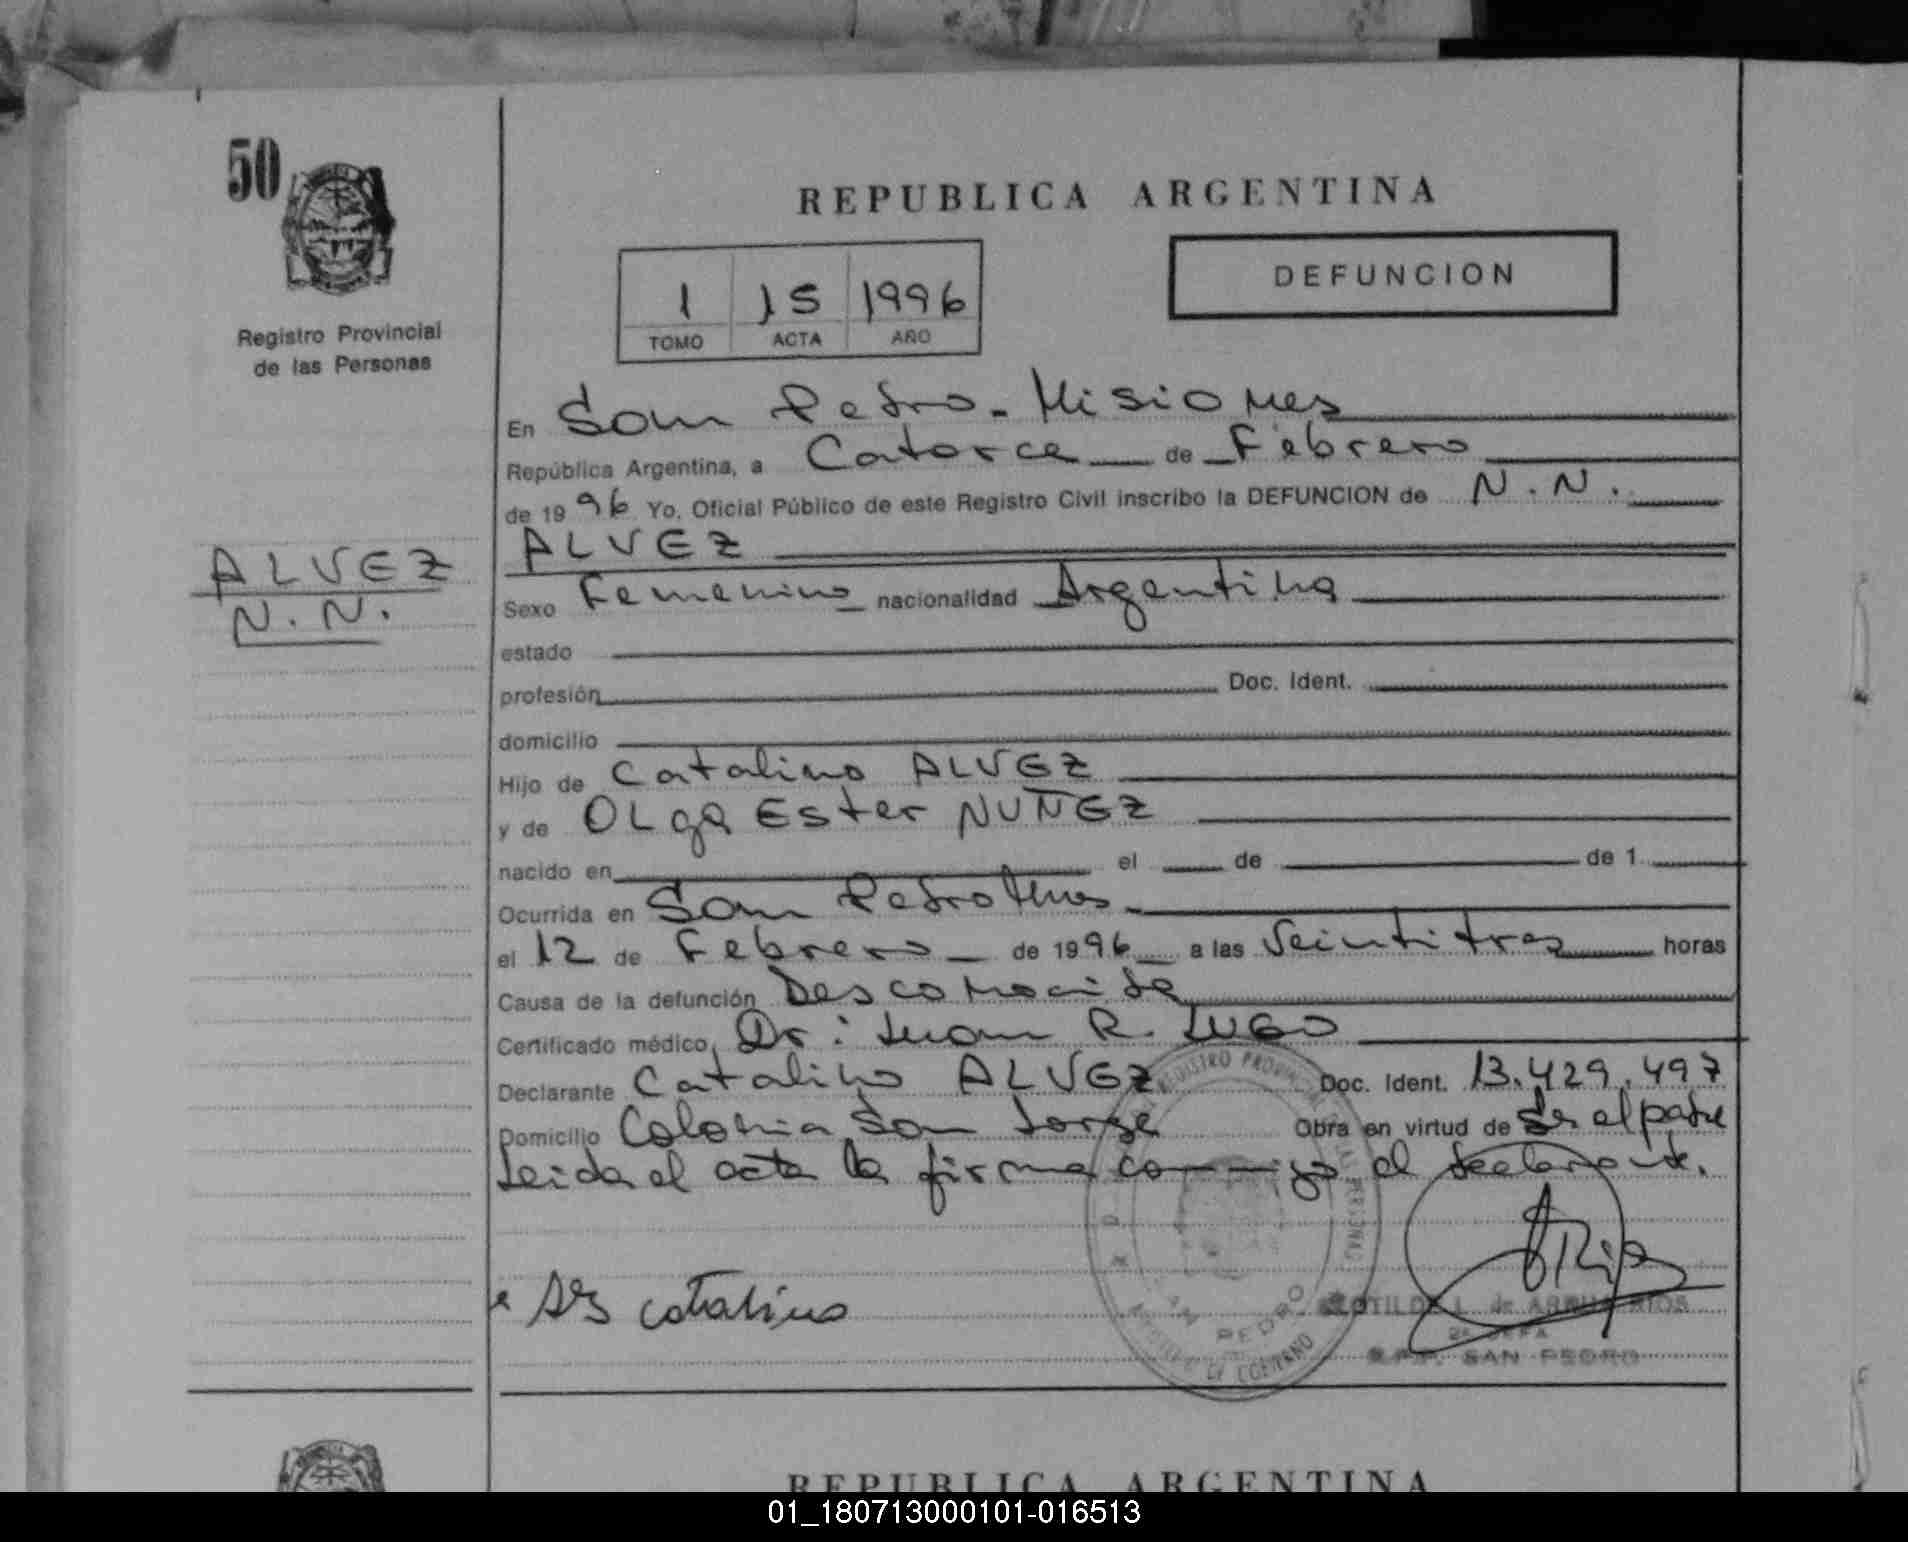 50
REPUBLICA ARGENTINA
DEFUNCION
1 15 1996
TOMO ACTA AÑO
Registro Provincial
de las Personas
En San Pedro - Misiones
República Argentina, a Catorce de Febrero
de 19 96 Yo, Oficial Público de este Registro Civil inscribo la DEFUNCION de N.N.
ALVEZ
ALVEZ
N.N.
Sexo Femenino nacionalidad Argentina
estado
profesión Doc. Ident.
domicilio
Hijo de Catalino ALVEZ
y de OLga Ester NUÑEZ
nacido en el de de 1
Ocurrida en San Pedro Mnes
el 12 de Febrero de 1996 a las Veintitres horas
Causa de la defunción Desconocida
Certificado médico Dr: Juan R. LUGO
Declarante Catalino ALVEZ Doc. Ident. 13.429.497
Domicilio Colonia San Jorge Obra en virtud de Ser el padre
Leida el acta la firma conmigo el declarante.
catalino
REGISTRO PROVINCIAL DE LAS PERSONAS
SAN PEDRO
CLOTILDE L. de ARRUA RIOS
2a JEFA
R.P.P. SAN PEDRO
REPUBLICA ARGENTINA
01_180713000101-016513